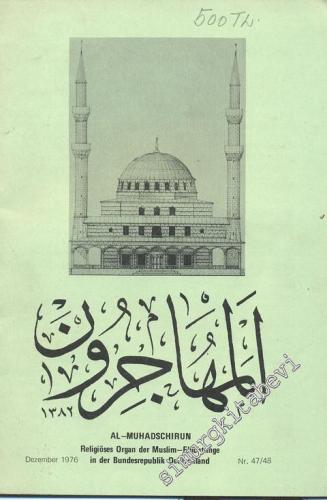 500 TL.
المهاجرون
١٣٨٢
AL-MUHADSCHIRUN
Religiöses Organ der Muslim-Flüchtlinge
in der Bundesrepublik Deutschland
Dezember 1976 Nr. 47/48
simurgkitabevi